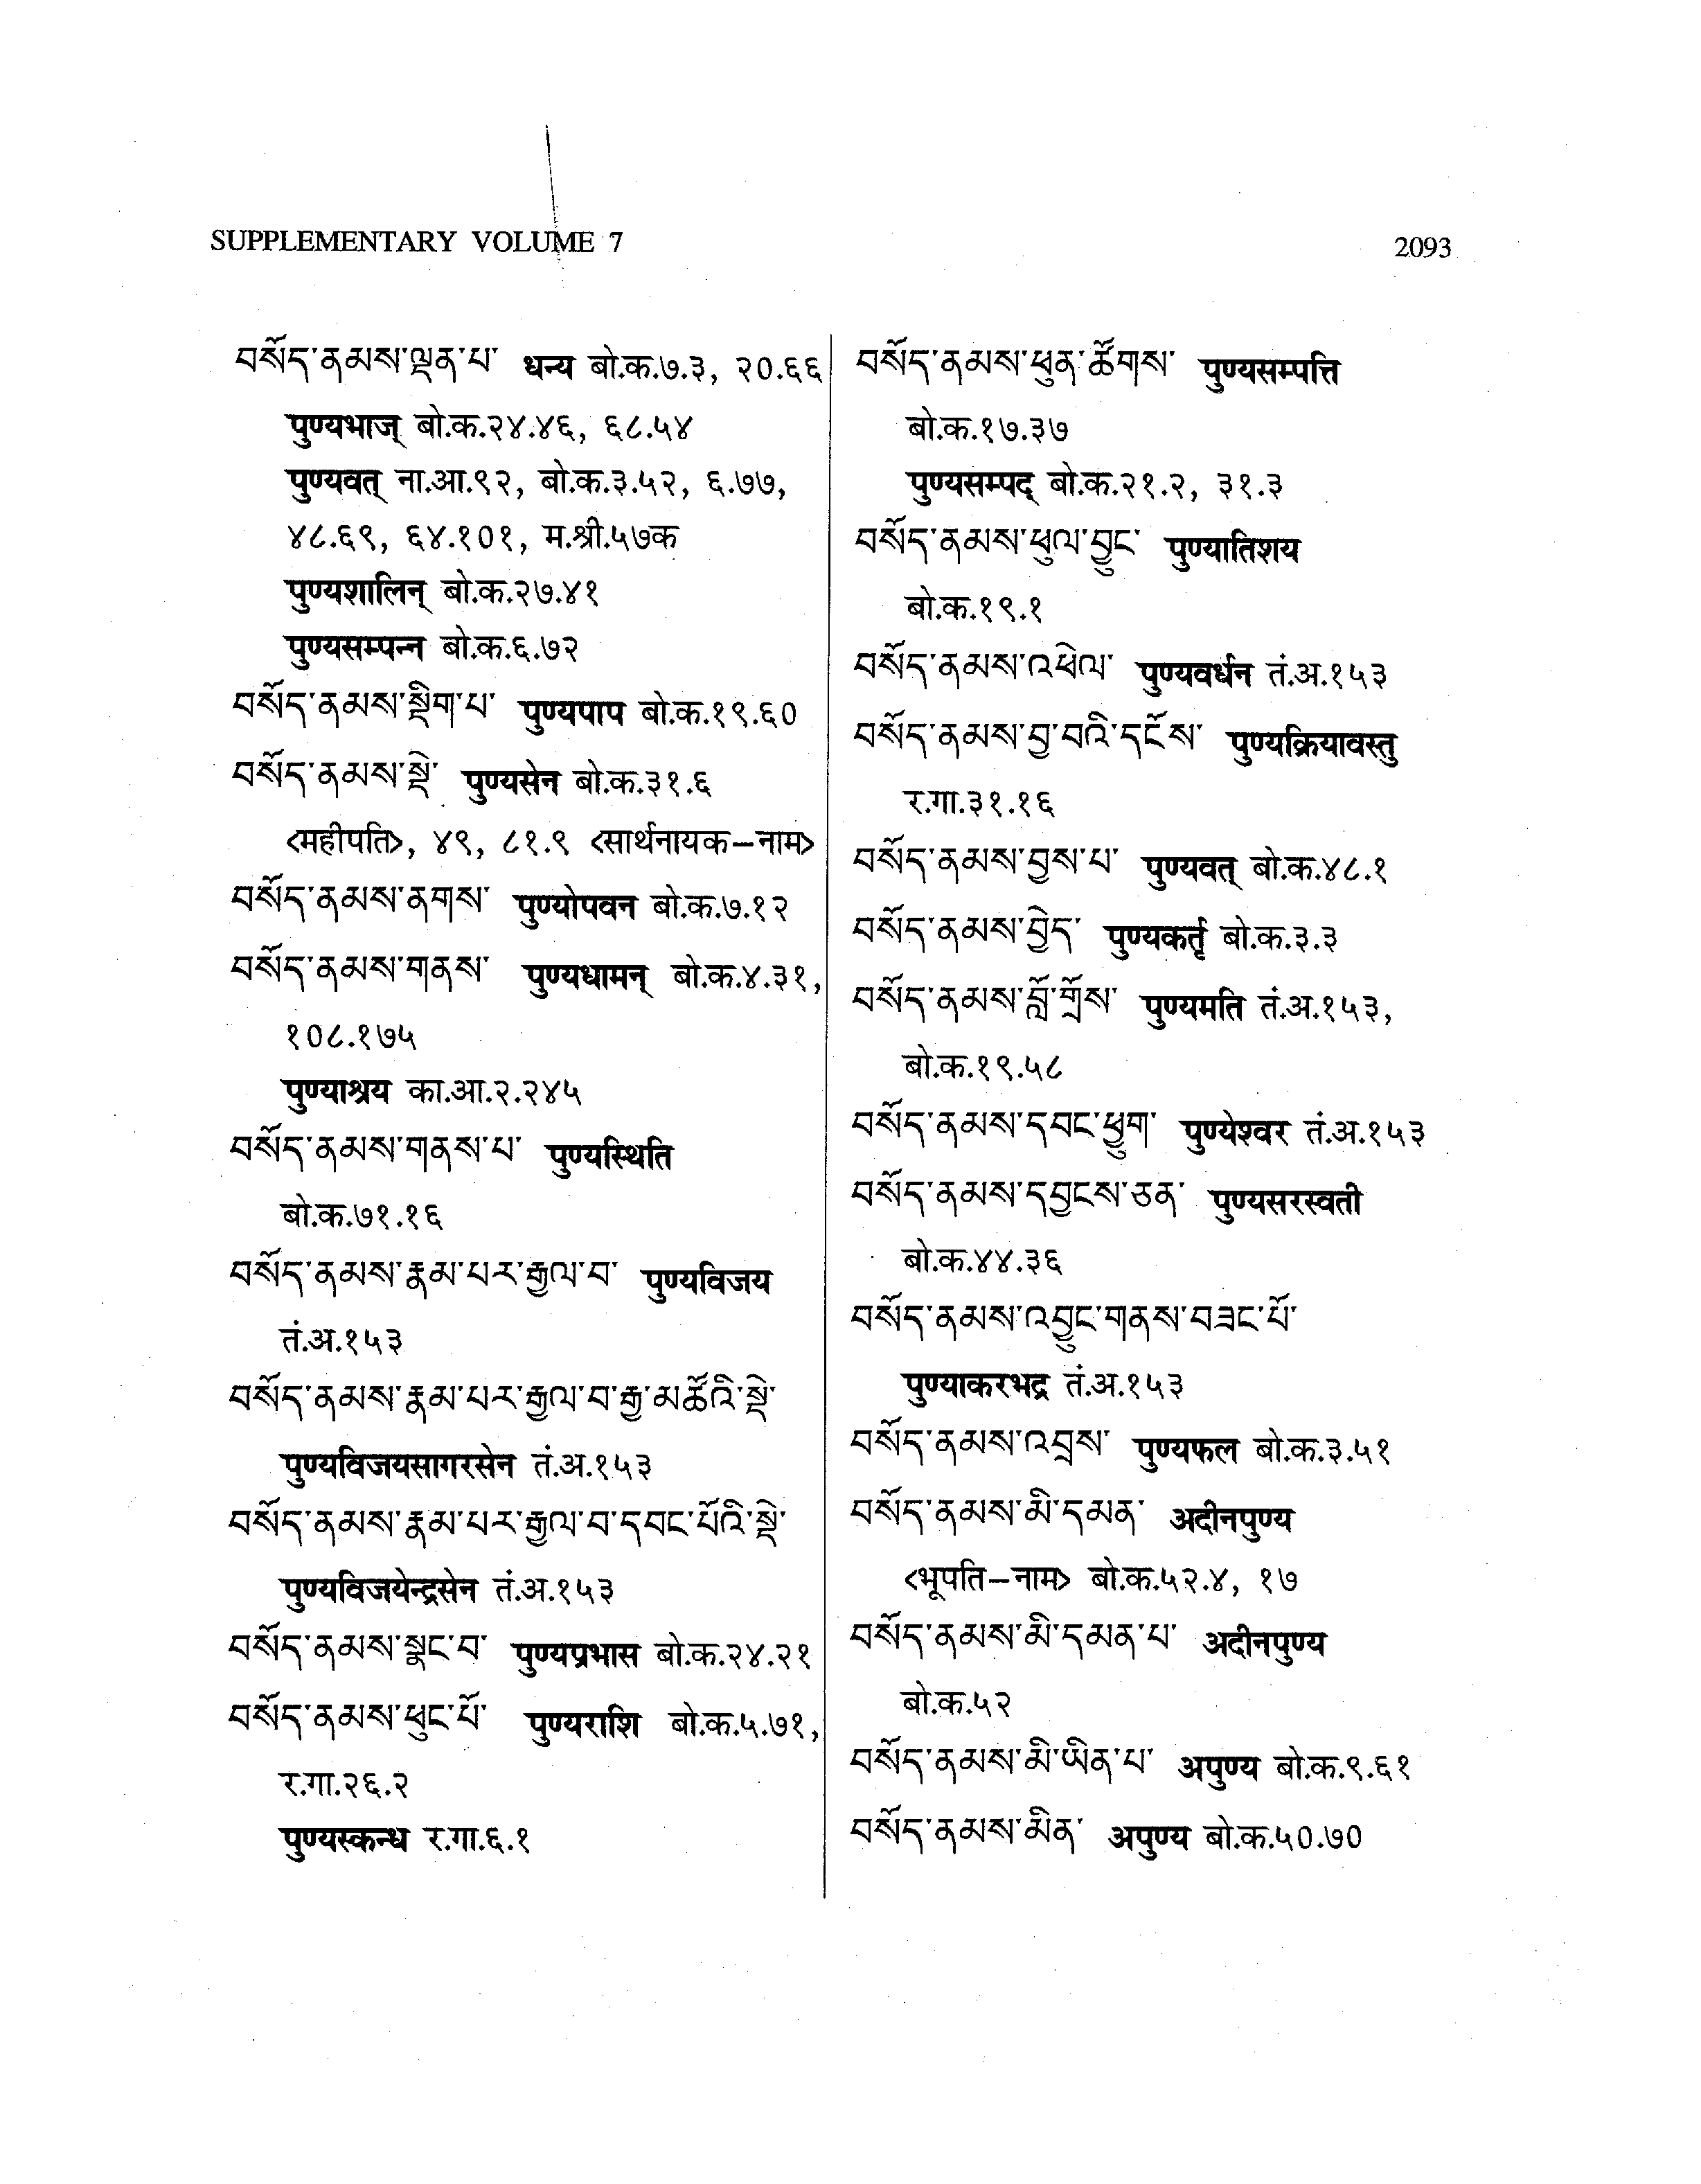 SUPPLEMENTARY VOLUME 7
2093
བསོད་ནམས་ལྡན་པ་ धन्य बो.क.७.३, २०.६६
पुण्यभाज् बो.क.२४.४६, ६८.५४
पुण्यवत् ना.आ.९२, बो.क.३.५२, ६.७७,
४८.६९, ६४.१०१, म.श्री.५७क
पुण्यशालिन् बो.क.२७.४१
पुण्यसम्पन्न बो.क.६.७२
བསོད་ནམས་སྡིག་པ་ पुण्यपाप बो.क.१९.६०
བསོད་ནམས་སྡེ་ पुण्यसेन बो.क.३१.६
<महीपति>, ४९, ८१.९ <सार्थनायक–नाम>
བསོད་ནམས་ནགས་ पुण्योपवन बो.क.७.१२
བསོད་ནམས་གནས་ पुण्यधामन् बो.क.४.३१,
१०८.१७५
पुण्याश्रय का.आ.२.२४५
བསོད་ནམས་གནས་པ་ पुण्यस्थिति
बो.क.७१.१६
བསོད་ནམས་རྣམ་པར་རྒྱལ་བ་ पुण्यविजय
तं.अ.१५३
བསོད་ནམས་རྣམ་པར་རྒྱལ་བ་རྒྱ་མཚོའི་སྡེ་
पुण्यविजयसागरसेन तं.अ.१५३
བསོད་ནམས་རྣམ་པར་རྒྱལ་བ་དབང་པོའི་སྡེ་
पुण्यविजयेन्द्रसेन तं.अ.१५३
བསོད་ནམས་སྣང་བ་ पुण्यप्रभास बो.क.२४.२१
བསོད་ནམས་ཕུང་པོ་ पुण्यराशि बो.क.५.७१,
र.गा.२६.२
पुण्यस्कन्ध र.गा.६.१
བསོད་ནམས་ཕུན་ཚོགས་ पुण्यसम्पत्ति
बो.क.१७.३७
पुण्यसम्पद् बो.क.२१.२, ३१.३
བསོད་ནམས་ཕུལ་བྱུང་ पुण्यातिशय
बो.क.१९.१
བསོད་ནམས་འཕེལ་ पुण्यवर्धन तं.अ.१५३
བསོད་ནམས་བྱ་བའི་དངོས་ पुण्यक्रियावस्तु
र.गा.३१.१६
བསོད་ནམས་བྱས་པ་ पुण्यवत् बो.क.४८.१
བསོད་ནམས་བྱེད་ पुण्यकर्तृ बो.क.३.३
བསོད་ནམས་བློ་གྲོས་ पुण्यमति तं.अ.१५३,
बो.क.१९.५८
བསོད་ནམས་དབང་ཕྱུག་ पुण्येश्वर तं.अ.१५३
བསོད་ནམས་དབྱངས་ཅན་ पुण्यसरस्वती
बो.क.४४.३६
བསོད་ནམས་འབྱུང་གནས་བཟང་པོ་
पुण्याकरभद्र तं.अ.१५३
བསོད་ནམས་འབྲས་ पुण्यफल बो.क.३.५१
བསོད་ནམས་མི་དམན་ अदीनपुण्य
<भूपति–नाम> बो.क.५२.४, १७
བསོད་ནམས་མི་དམན་པ་ अदीनपुण्य
बो.क.५२
བསོད་ནམས་མི་ཡིན་པ་ अपुण्य बो.क.९.६१
བསོད་ནམས་མིན་ अपुण्य बो.क.५०.७०